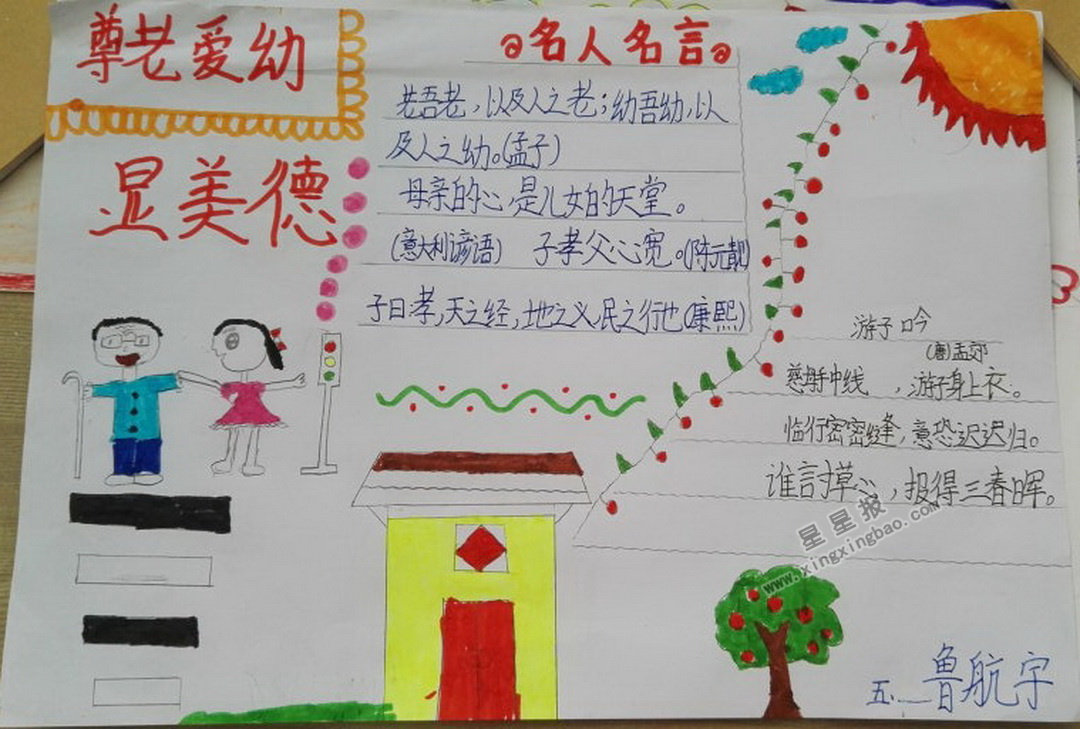 尊老爱幼
显美德
名人名言
老吾老，以及人之老；幼吾幼，以
及人之幼。(孟子)
母亲的心，是儿女的天堂。
(意大利谚语) 子孝父心宽。(陈元靓)
子曰：孝，天之经，地之义，民之行也(康熙)
游子吟
(唐)孟郊
慈母手中线，游子身上衣。
临行密密缝，意恐迟迟归。
谁言寸草心，报得三春晖。
星星报
www.xingxingbao.com
五.一 鲁航宇